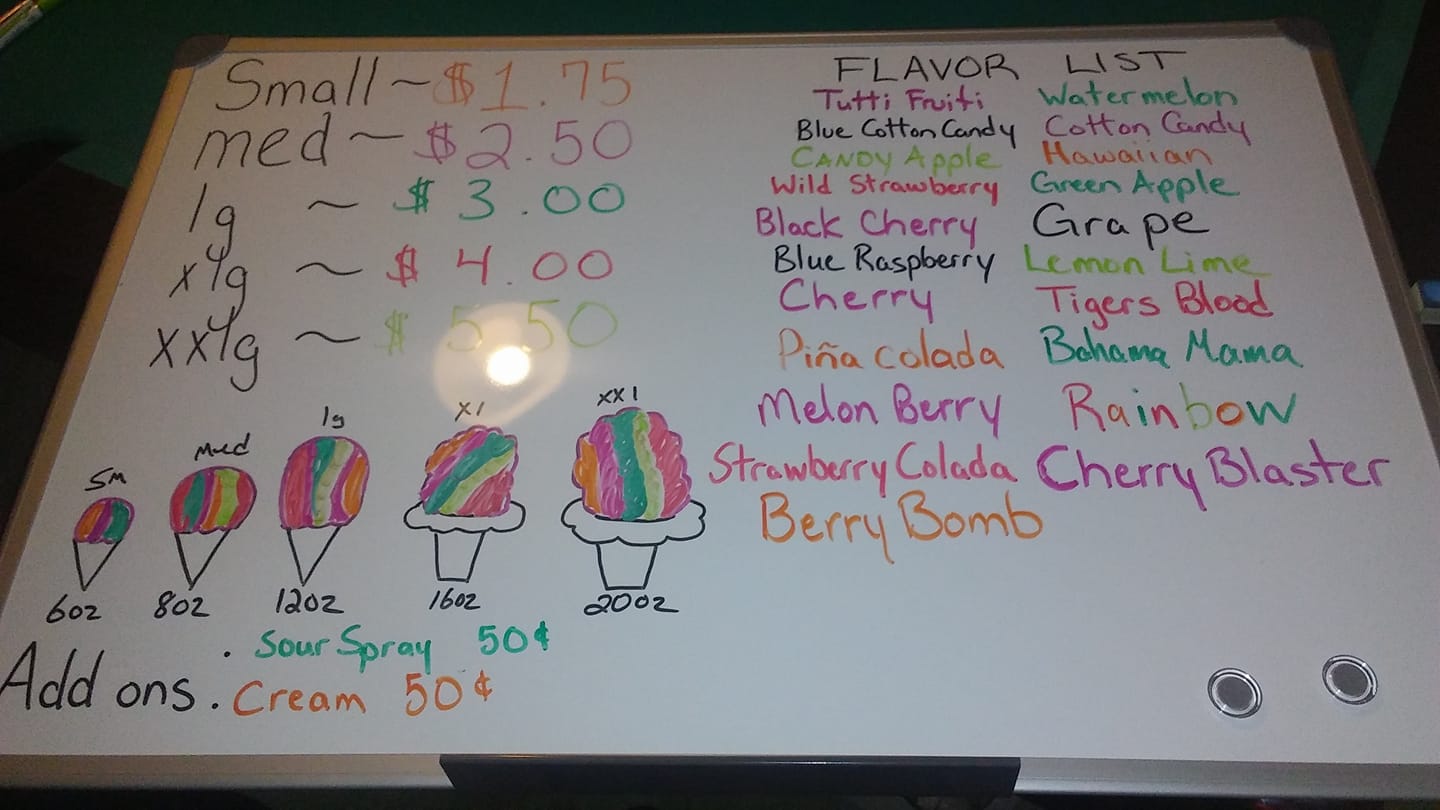 Small ~ $1.75
med ~ $2.50
lg ~ $3.00
xlg ~ $4.00
xxlg ~ $5.50
sm
med
lg
xl
xxl
6oz
8oz
12oz
16oz
20oz
Add ons
. Sour Spray 50¢
. Cream 50¢
FLAVOR LIST
Tutti Fruiti
Blue Cotton Candy
CANDY Apple
Wild Strawberry
Black Cherry
Blue Raspberry
Cherry
Piña colada
Melon Berry
Strawberry Colada
Berry Bomb
Watermelon
Cotton Candy
Hawaiian
Green Apple
Grape
Lemon Lime
Tigers Blood
Bahama Mama
Rainbow
Cherry Blaster